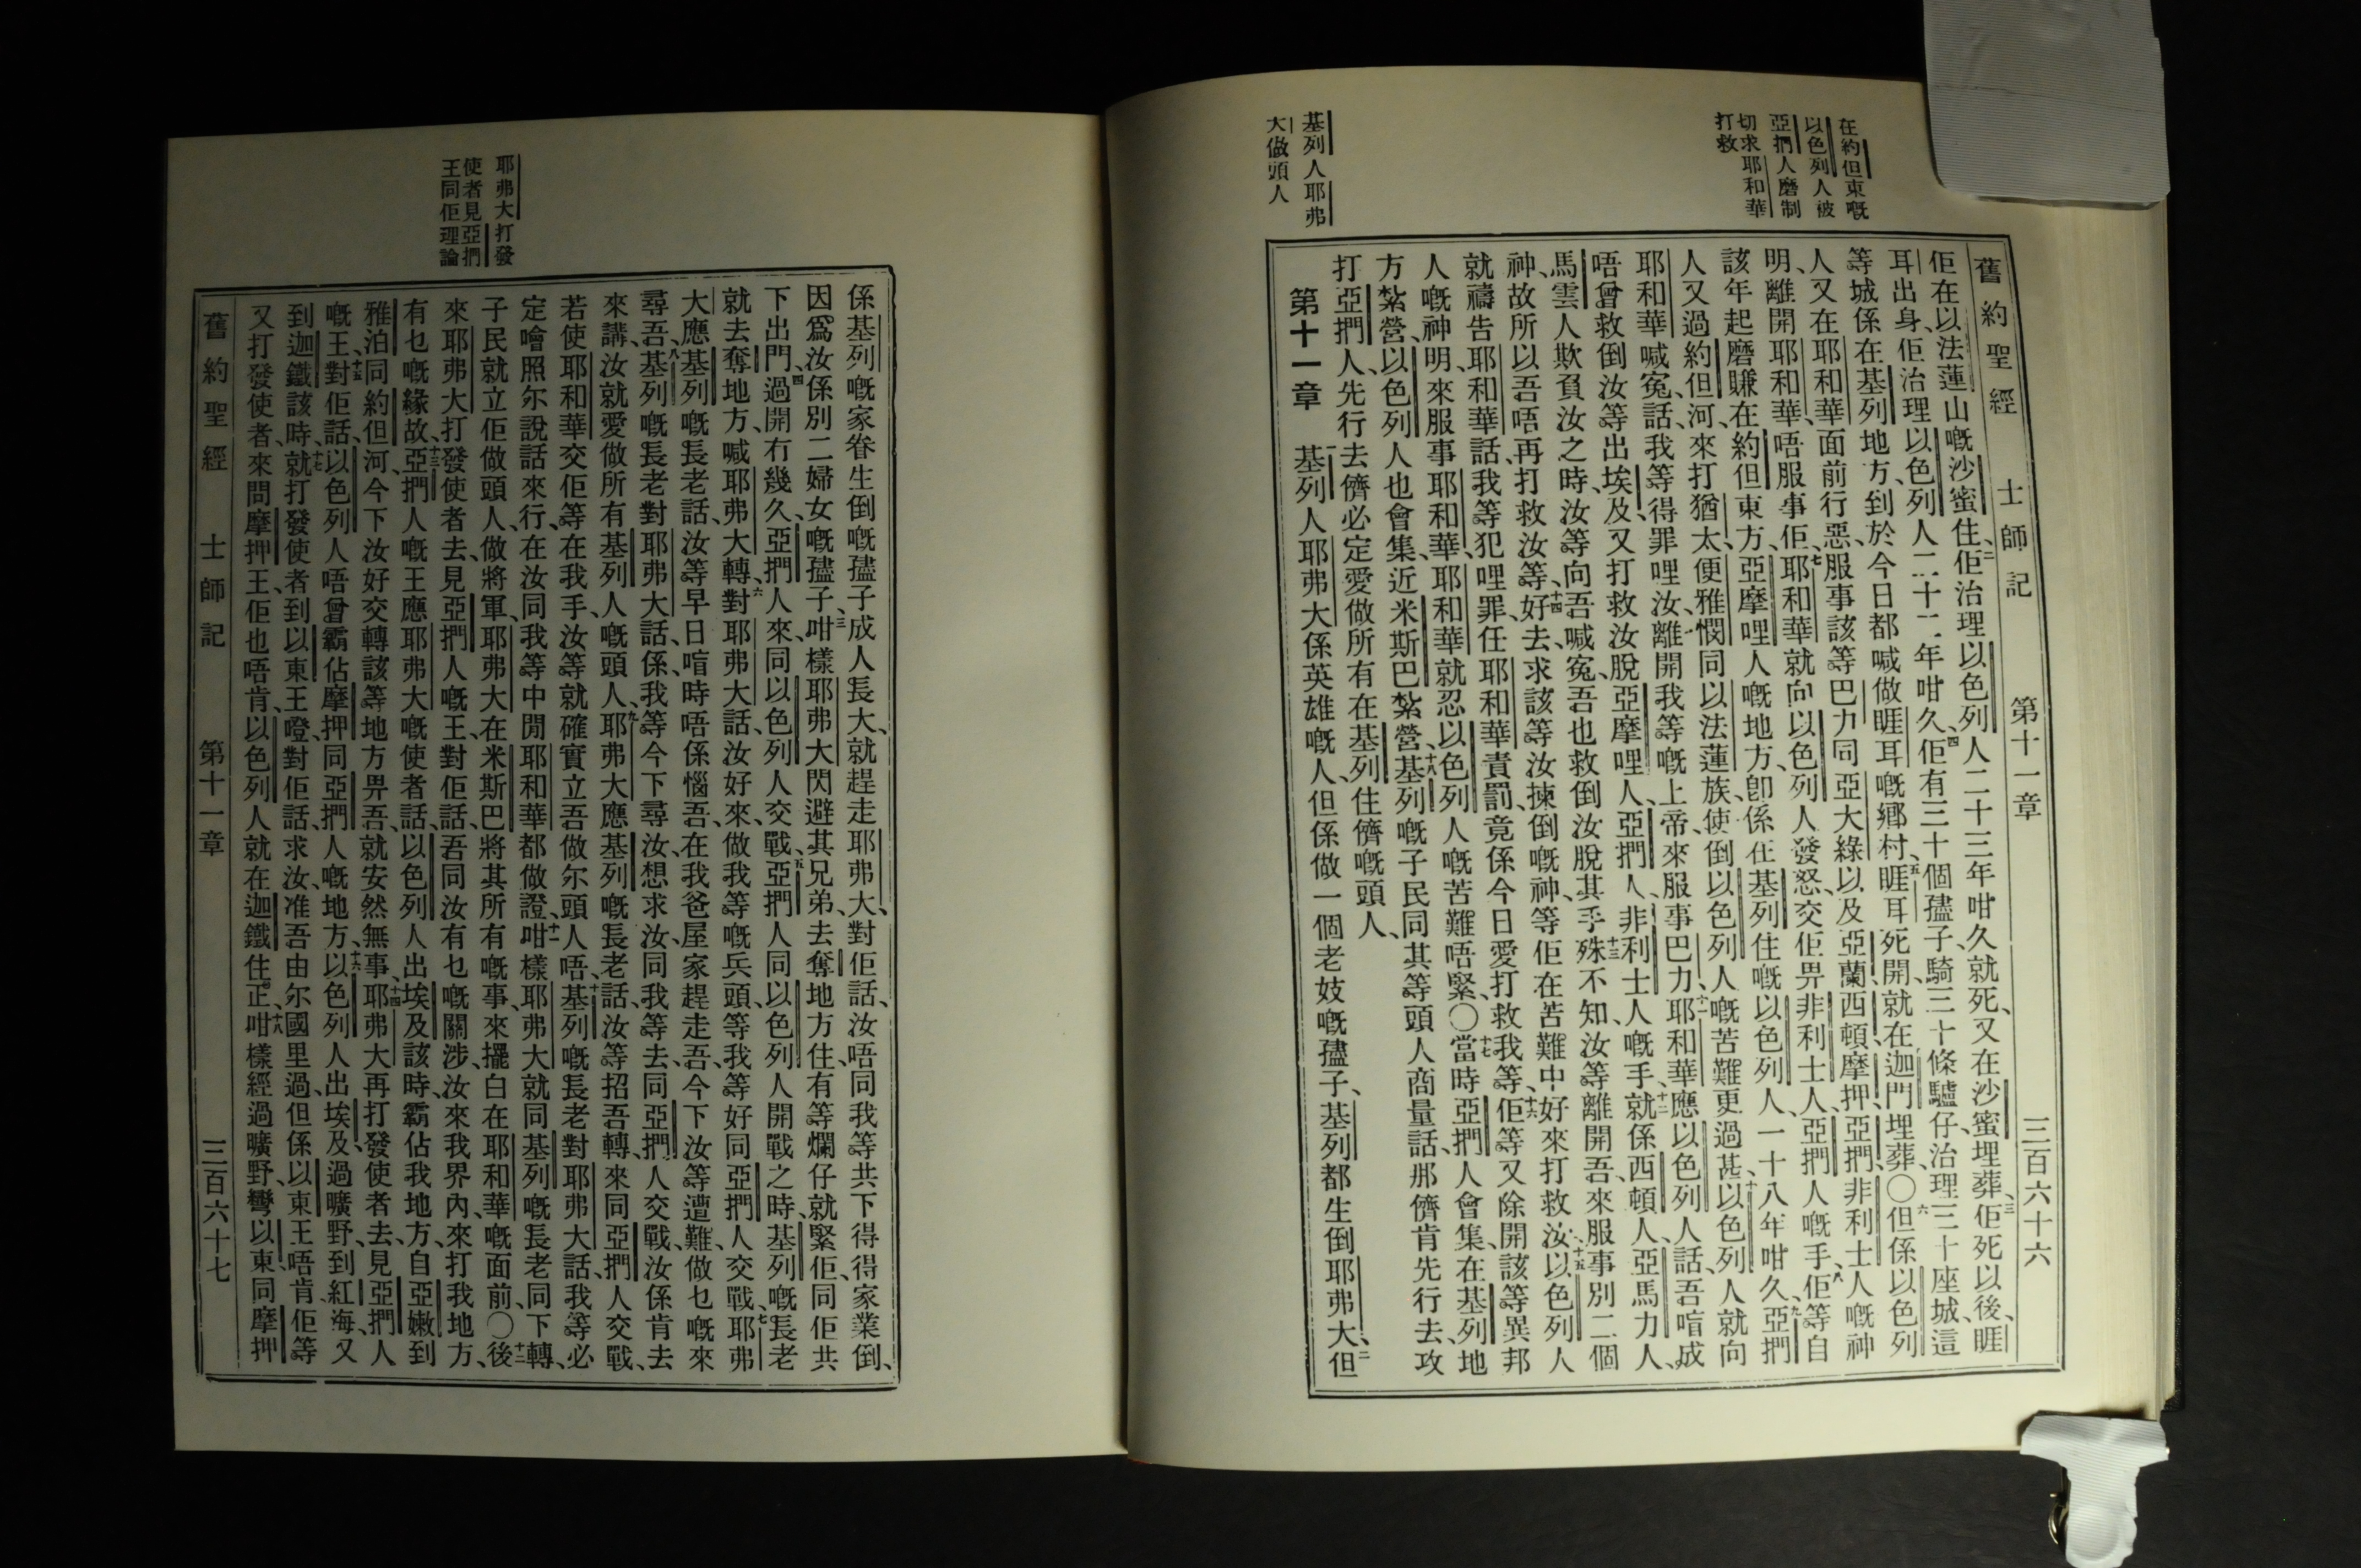 舊約聖經 士師記 第十一章 三百六十六
在約但東嘅
以色列人被
亞捫人磨制
切求耶和華
打救
基列人耶弗
大做頭人
佢在以法蓮山嘅沙蜜住、二佢治理以色列人二十三年咁久、就死、又在沙蜜埋葬、三佢死以後、睚
耳出身、佢治理以色列人二十二年咁久、四佢有三十個孻子、騎三十條驢仔、治理三十座城、這
等城係在基列地方、到於今日都喊做睚耳嘅鄉村、五睚耳死開、就在迦門埋葬、〇六但係以色列
人又在耶和華面前行惡、服事該等巴力、同亞大綠、以及亞蘭、西頓、摩押、亞捫、非利士人嘅神
明、離開耶和華、唔服事佢、七耶和華就向以色列人發怒、交佢畀非利士人、亞捫人嘅手、八佢等自
該年起、磨賺在約但東方、亞摩哩人嘅地方、卽係在基列住嘅以色列人、一十八年咁久、九亞捫
人又過約但河、來打猶太、便雅憫、同以法蓮族、使倒以色列人嘅苦難更過甚、十以色列人就向
耶和華喊寃、話、我等得罪哩汝、離開我等嘅上帝、來服事巴力、十一耶和華應以色列人話、吾喑成
唔曾救倒汝等出埃及、又打救汝脫亞摩哩人、亞捫人、非利士人嘅手、十二就係西頓人、亞馬力人、
馬雲人欺負汝之時、汝等向吾喊寃、吾也救倒汝脫其手、十三殊不知、汝等離開吾、來服事別二個
神、故所以吾唔再打救汝等、十四好去求該等汝揀倒嘅神、等佢在苦難中好來打救汝、十五以色列人
就禱告耶和華話、我等犯哩罪、任耶和華責罰、竟係今日愛打救我等、十六佢等又除開該等異邦
人嘅神明、來服事耶和華、耶和華就忍以色列人嘅苦難唔緊、〇十七當時亞捫人會集、在基列地
方紮營、以色列人也會集、近米斯巴紮營、十八基列嘅子民、同其等頭人商量話、那儕肯先行去、攻
打亞捫人、先行去儕必定愛做所有在基列住儕嘅頭人、
第十一章 一基列人耶弗大係英雄嘅人、但係做一個老妓嘅孻子、基列都生倒耶弗大、二但
耶弗大打發
使者見亞捫
王同佢理論
係基列嘅家眷生倒嘅孻子、成人長大、就趕走耶弗大、對佢話、汝唔同我等共下得得家業倒、
因爲汝係別二婦女嘅孻子、三咁樣耶弗大閃避其兄弟、去奪地方住、有等爛仔就緊佢、同佢共
下出門、四過開冇幾久、亞捫人來、同以色列人交戰、五亞捫人同以色列人開戰之時、基列嘅長老
就去奪地方、喊耶弗大轉、六對耶弗大話、汝好來、做我等嘅兵頭、等我等好同亞捫人交戰、七耶弗
大應基列嘅長老話、汝等早日喑時唔係惱吾、在我爸屋家趕走吾、今下汝等遭難、做乜嘅來
尋吾、八基列嘅長老對耶弗大話、係我等今下尋汝、想求汝、同我等去、同亞捫人交戰、汝係肯去
來講、汝就愛做所有基列人嘅頭人、九耶弗大應基列嘅長老話、汝等招吾轉、來同亞捫人交戰、
若使耶和華交佢等在我手、汝等就確實立吾做尔頭人唔、十基列嘅長老對耶弗大話、我等必
定噲照尔說話來行、在汝同我等中閒、耶和華都做證、十一咁樣耶弗大就同基列嘅長老、同下轉、
子民就立佢做頭人、做將軍、耶弗大在米斯巴、將其所有嘅事、來擺白在耶和華嘅面前、〇十二後
來耶弗大打發使者去、見亞捫人嘅王、對佢話、吾同汝有乜嘅關涉、汝來我界內、來打我地方、
有乜嘅緣故、十三亞捫人嘅王應耶弗大嘅使者話、以色列人出埃及該時、霸佔我地方、自亞嫩到
雅泊、同約但河、今下汝好交轉該等地方畀吾、就安然無事、十四耶弗大再打發使者去、見亞捫人
嘅王、十五對佢話、以色列人唔曾霸佔摩押、同亞捫人嘅地方、十六以色列人出埃及、過曠野、到紅海、又
到迦鐵、該時、十七就打發使者、到以東王嗱、對佢話、求汝准吾由尔國里過、但係以東王唔肯、佢等
又打發使者、來問摩押王、佢也唔肯、以色列人就在迦鐵住正、十八咁樣經過曠野、彎以東同摩押
舊約聖經 士師記 第十一章 三百六十七